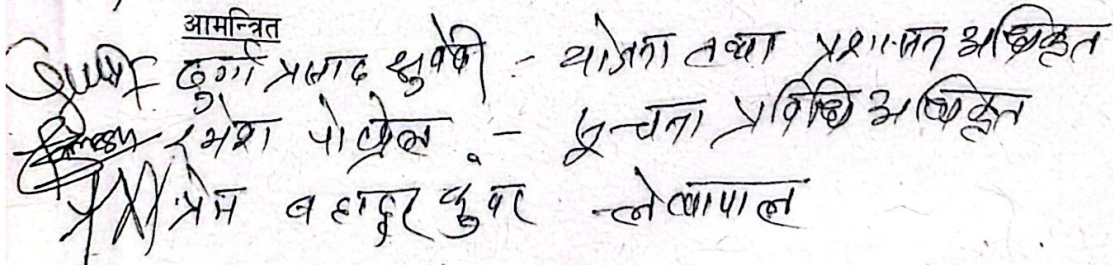 आमन्त्रित
दुर्गा प्रसाद सुवेदी - योजना तथा प्रशासन अधिकृत
रमेश पोख्रेल - सूचना प्रविधि अधिकृत
प्रेम बहादुर कुवर - लेखापाल